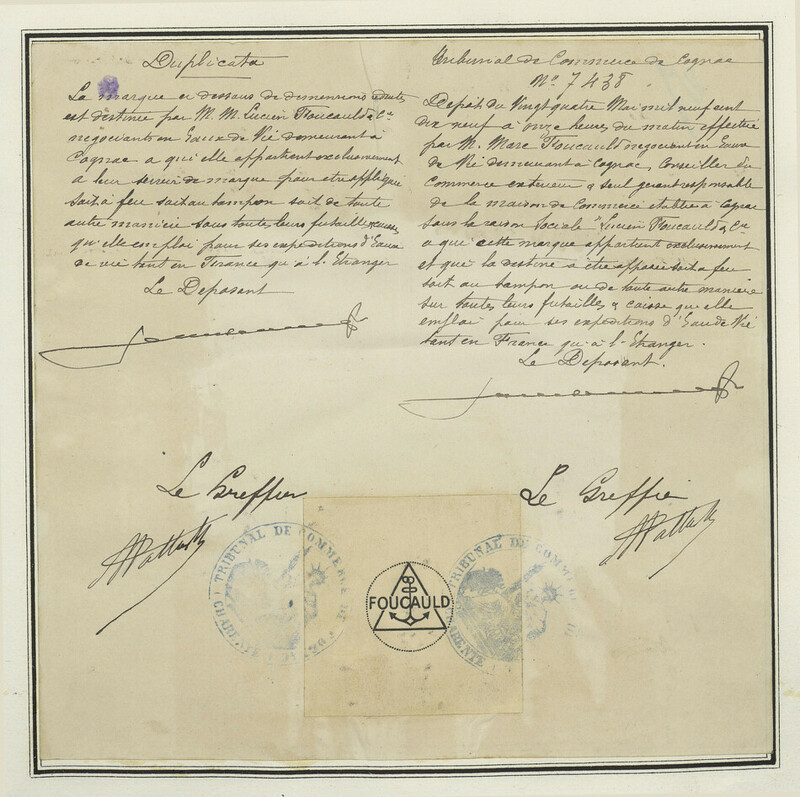 Duplicata
La marque ci dessous de dimensions réduites
est destinée par M. M. Lucien Foucauld & Cie
négociants en Eaux de Vie demeurant à
Cognac a qui elle appartient exclusivement
a leur servir de marque pour etre appliquée
soit à feu soit au tampon soit de toute
autre manière sous toutes leurs futailles caisses
qu'elle emploi pour ses expéditions d'Eaux
de vie tant en France qu'à l'Etranger
Le Deposant
Tribunal de Commerce de Cognac
No 7438
Dépôt du Vingt quatre Mai mil neuf cent
dix neuf à onze heures du matin effectué
par M. Marc Foucauld négociant en Eaux
de Vie demeurant à Cognac, Conseiller du
Commerce extérieur & seul gérant responsable
de la maison de Commerce établie à Cognac
sous la raison sociale "Lucien Foucauld & Cie
a qui cette marque appartient exclusivement
et qui la destine a être apposée soit a feu
soit au tampon ou de toute autre manière
sur toutes leurs futailles & caisse que elle
emploi pour ses expéditions d'Eau de Vie
tant en France qu'à l'Etranger.
Le Deposant.
Le Greffier
Le Greffie
TRIBUNAL DE COMMERCE DE
CHARENTE
FOUCAULD
TRIBUNAL DE COMM
ARENTE